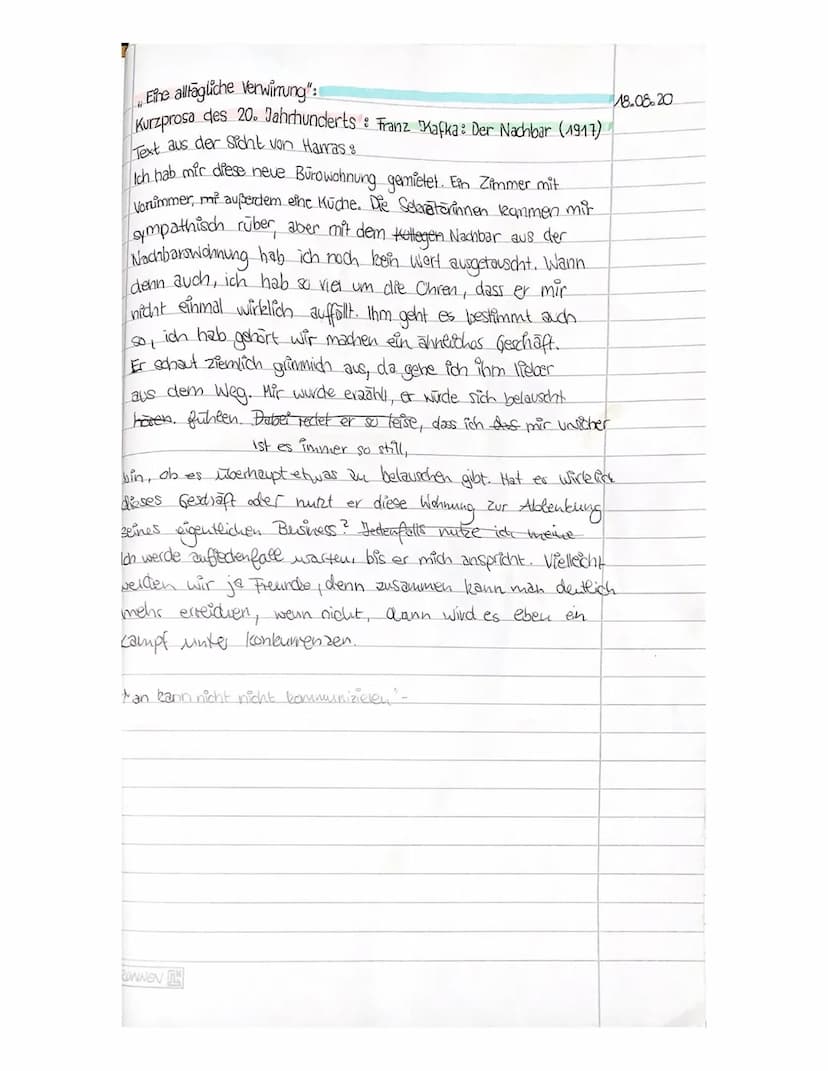 „Eine alltägliche Verwirrung":
18.08.20
Kurzprosa des 20. Jahrhunderts: Franz Kafka: Der Nachbar (1917)
Text aus der Sicht von Harras:
Ich hab mir diese neue Bürowohnung gemietet. Ein Zimmer mit
Vorzimmer, mi außerdem eine Küche. Die Sekretärinnen kammen mir
sympathisch rüber, aber mit dem Kollegen Nachbar aus der
Nachbarswohnung hab ich noch kein Wort ausgetauscht. Wann
denn auch, ich hab so viel um die Ohren, dass er mir
nicht einmal wirklich auffällt. Ihm geht es bestimmt auch
so, ich hab gehört wir machen ein ähnliches Geschäft.
Er schaut ziemlich grimmich aus, da gehe ich ihm lieber
aus dem Weg. Mir wurde erzählt, er würde sich belauscht
hören. fühlen. Dabei redet er so leise, dass ich das mir unsicher
ist es immer so still,
bin, ob es überhaupt etwas zu belauschen gibt. Hat er wirklich
dieses Geschäft oder nutzt er diese Wohnung zur Ablenkung
seines eigentlichen Business? Jedenfalls nutze ich meine
Ich werde aufjedenfall warten, bis er mich anspricht. Vielleicht
werden wir ja Freunde, denn zusammen kann man deutlich
mehr erreichen, wenn nicht, dann wird es eben ein
Kampf unter Konkurrenzen.
an kann nicht nicht kommunizieren"-